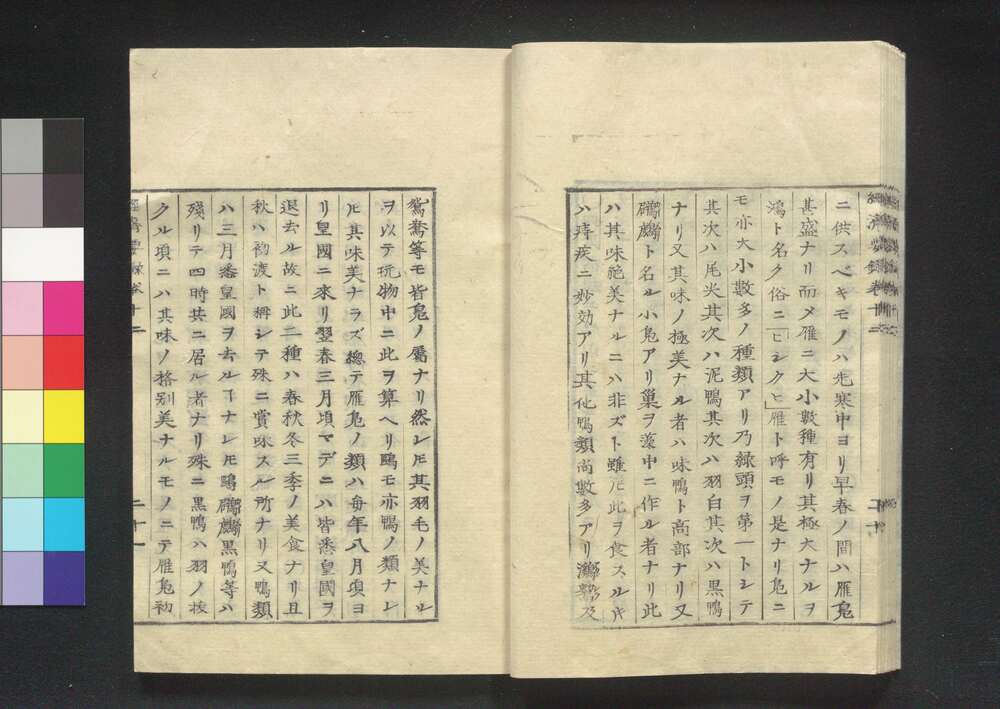 二供スベキモノハ先寒中ヨリ早春ノ間ハ雁鳧
其盛ナリ而メ雁ニ大小數種有リ其極大ナルヲ
鴻ト名ク俗ニ「ヒシクヒ」雁ト呼モノ是ナリ鳧ニ
モ亦大小數多ノ種類アリ乃緑頭ヲ第一トシテ
其次ハ尾尖其次ハ泥鴨其次ハ羽白其次ハ黒鴨
ナリ又其味ノ極美ナル者ハ味鴨ト高部ナリ又
鸊鷉ト名ル小鳧アリ巢ヲ藻中ニ作ル者ナリ此
ハ其味絶美ナルニハ非ズト雖𪜈此ヲ食スル𪜈
ハ痔疾ニ妙効アリ其他鴨類尚數多アリ鸂鶒及
鴛鴦等モ皆鳧ノ屬ナリ然レ𪜈其羽毛ノ美ナル
ヲ以テ玩物中ニ此ヲ算ヘリ鷗モ亦鴨ノ類ナレ
𪜈其味美ナラズ總テ雁鳧ノ類ハ毎年八月頃ヨ
リ皇國ニ來リ翌春三月頃マデニハ皆悉皇國ヲ
退去ル故ニ此二種ハ春秋冬三季ノ美食ナリ且
秋ハ初渡ト稱シテ殊ニ賞味スル所ナリ又鴨類
ハ三月悉皇國ヲ去ルヿナレ𪜈鷗鸊鷉黒鴨等ハ
殘リテ四時共ニ居ル者ナリ殊ニ黒鴨ハ羽ノ拔
クル項ニハ其味ノ格別美ナルモノニテ雁鳧初
二十一